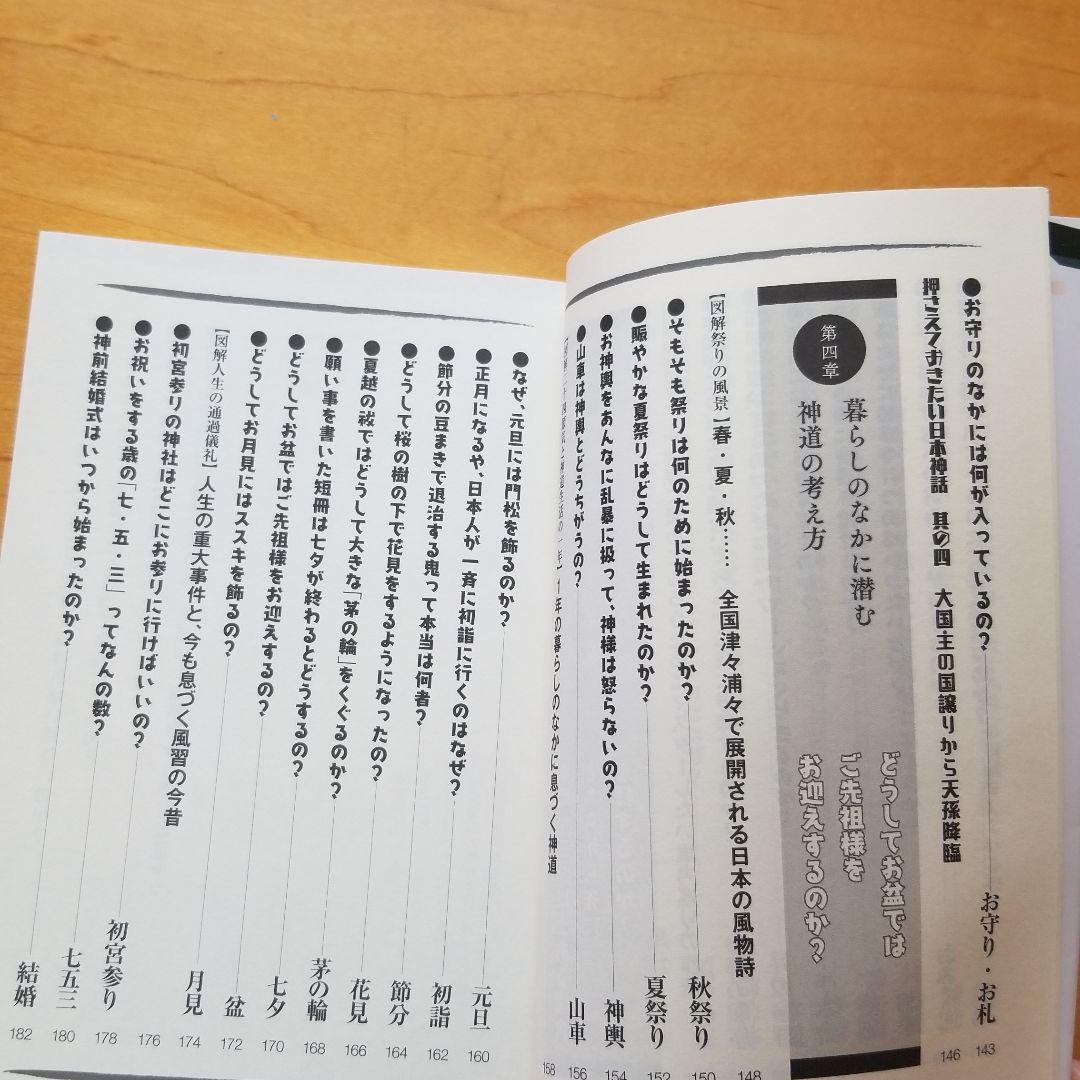 ●お守りのなかには何が入っているの？ お守り・お札 143
押さえておきたい日本神話 其の四 大国主の国譲りから天孫降臨 146
第四章
暮らしのなかに潜む
神道の考え方
どうしてお盆では
ご先祖様を
お迎えするのか？
148
【図解祭りの風景】春・夏・秋…… 全国津々浦々で展開される日本の風物詩
●そもそも祭りは何のために始まったのか？ 秋祭り 150
●賑やかな夏祭りはどうして生まれたのか？ 夏祭り 152
●お神輿をあんなに乱暴に扱って、神様は怒らないの？ 神輿 154
●山車は神輿とどうちがうの？ 山車 156
1年の暮らしのなかに息づく神道 158
●なぜ、元旦には門松を飾るのか？ 元旦 160
●正月になるや、日本人が一斉に初詣に行くのはなぜ？ 初詣 162
●節分の豆まきで退治する鬼って本当は何者？ 節分 164
●どうして桜の樹の下で花見をするようになったの？ 花見 166
●夏越の祓ではどうして大きな「茅の輪」をくぐるのか？ 茅の輪 168
●願い事を書いた短冊は七夕が終わるとどうするの？ 七夕 170
●どうしてお盆ではご先祖様をお迎えするの？ 盆 172
●どうしてお月見にはススキを飾るの？ 月見 174
【図解人生の通過儀礼】人生の重大事件と、今も息づく風習の今昔 176
●初宮参りの神社はどこにお参りに行けばいいの？ 初宮参り 178
●お祝いをする歳の「七・五・三」ってなんの数？ 七五三 180
●神前結婚式はいつから始まったのか？ 結婚 182